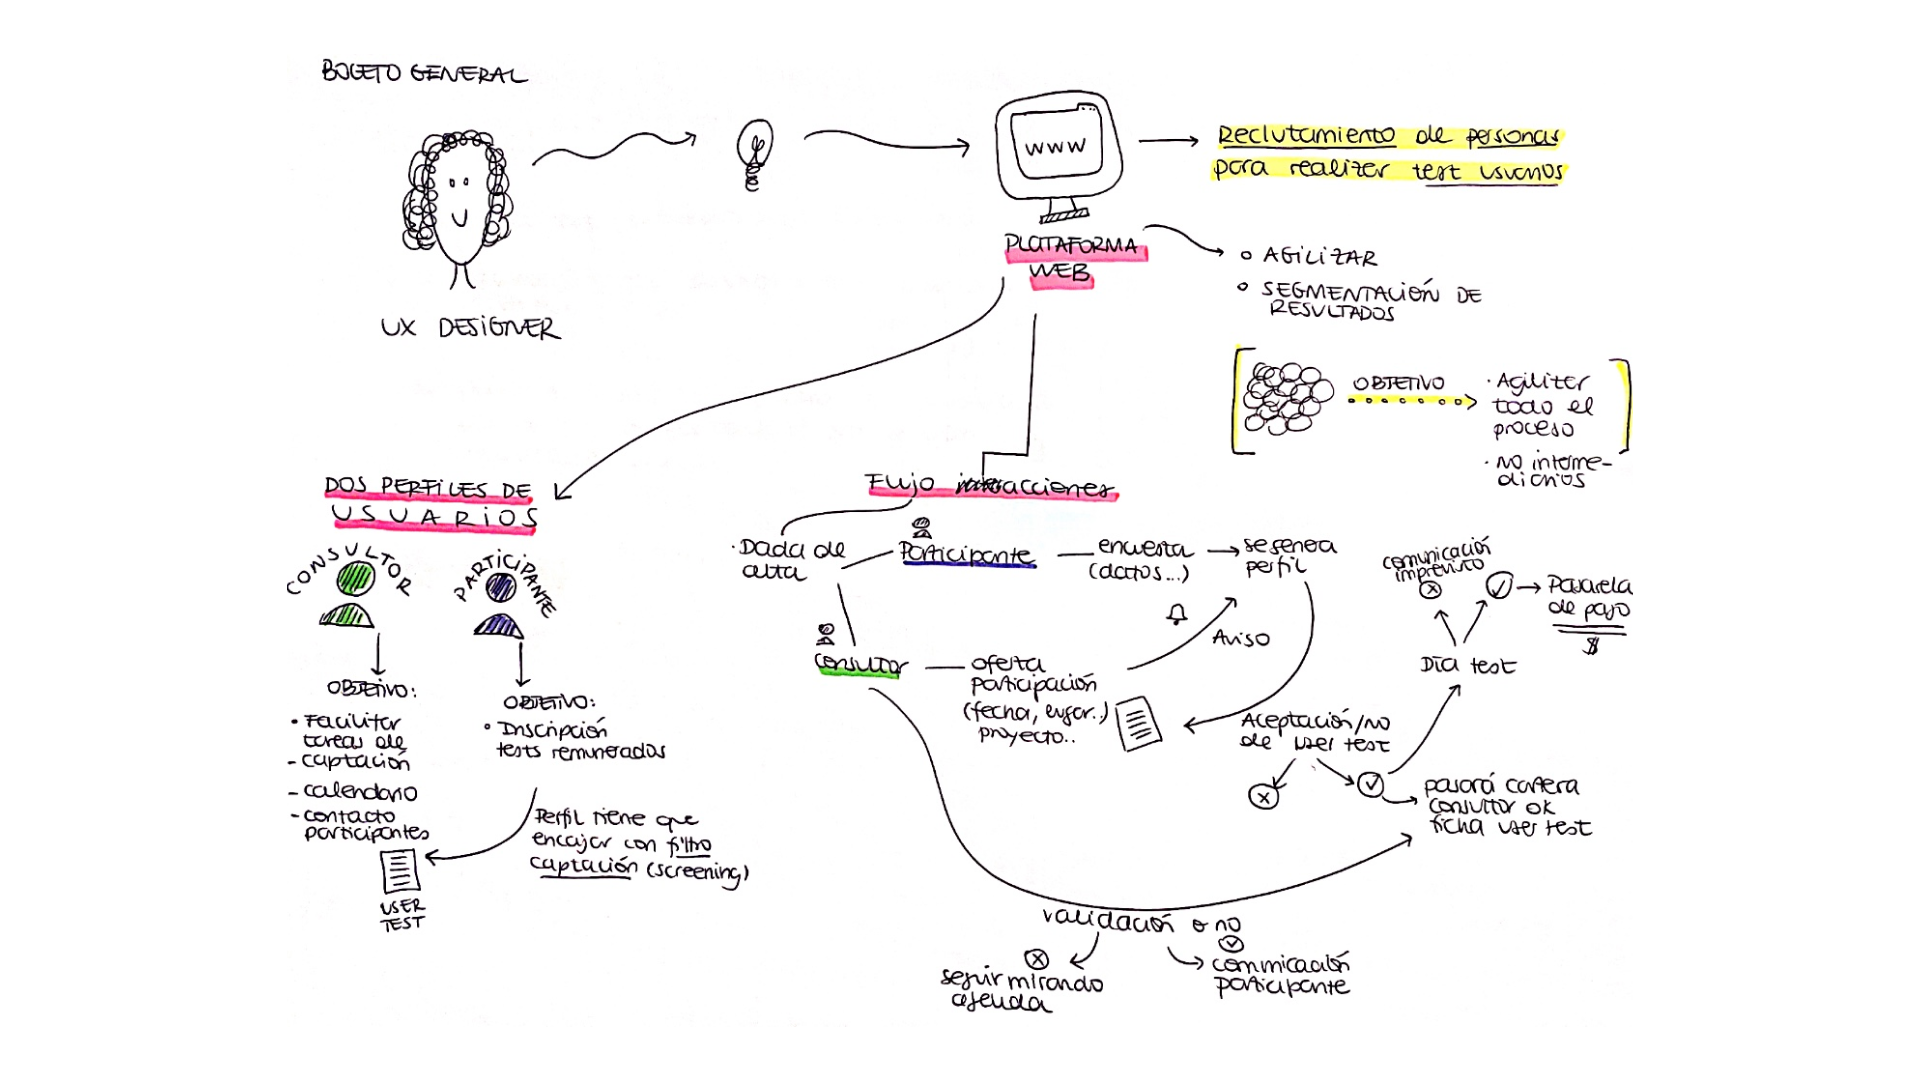 BOCETO GENERAL
UX DESIGNER
www
PLATAFORMA
WEB
Reclutamiento de personas
para realizar test usuarios
AGILIZAR
SEGMENTACIÓN DE
RESULTADOS
OBJETIVO
· Agilizar
todo el
proceso
· No interme-
diarios
DOS PERFILES DE
USUARIOS
CONSULTOR
PARTICIPANTE
OBJETIVO:
• Facilitar
tareas de
- captación
- calendario
- contacto
participantes
OBJETIVO:
Inscripción
tests remunerados
Perfil tiene que
encajar con filtro
captación (screening)
USER
TEST
Flujo interacciones
· Dada de
alta
Participante
encuesta
(datos...)
se genera
perfil
Consultor
oferta
participación
(fecha, lugar..)
proyecto..
Aviso
Aceptación/no
de user test
pasará cartera
consultor ok
ficha user test
Día test
comunicación
imprevisto
Pasarela
de pago
$
validación o no
seguir mirando
agenda
comunicación
participante